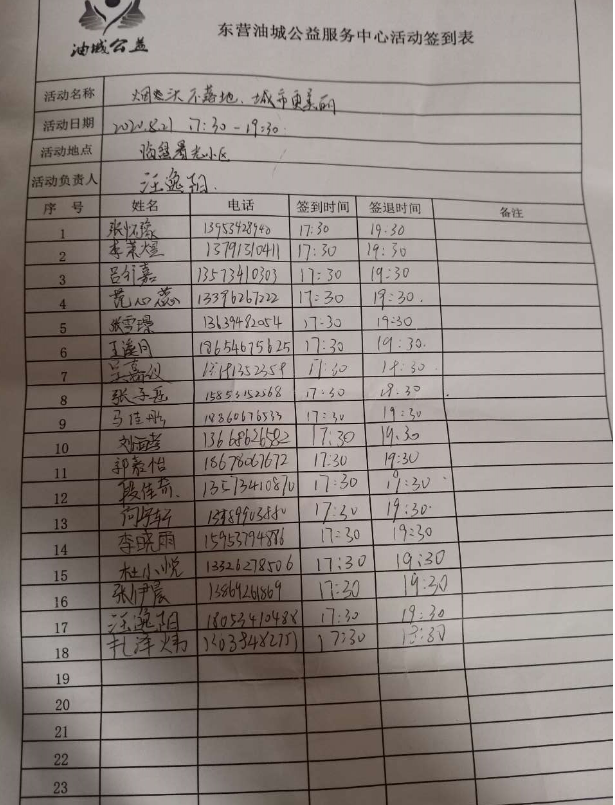 油城公益
东营油城公益服务中心活动签到表
活动名称 烟头不落地、城市更美丽
活动日期 2020.8.21 17:30-19:30
活动地点 临盘曙光小区
活动负责人 汪逸阳
序号 姓名 电话 签到时间 签退时间 备注
1 张怀豫 13953428940 17:30 19:30
2 李荣煜 13791310411 17:30 19:30
3 13573410303 17:30 19:30
4 范心蕊 13396267222 17:30 19:30
5 张雪璟 13639482054 17:30 19:30
6 18654675625 17:30 19:30
7 17:30
8 张子岳 15853152568 17:30
9 马佳彤 18860676533 17:30 19:30
10 13668626582 17:30 19:30
11 郭嘉怡 18678067672 17:30 19:30
12 段佳奇 13573410870 17:30 19:30
13 17:30 19:30
14 李晓雨 15953794886 17:30 19:30
15 杜小悦 13326278506 17:30 19:30
16 张伊晨 13869261869 17:30 19:30
17 汪逸阳 18053410488 17:30 19:30
18 17:30
19
20
21
22
23